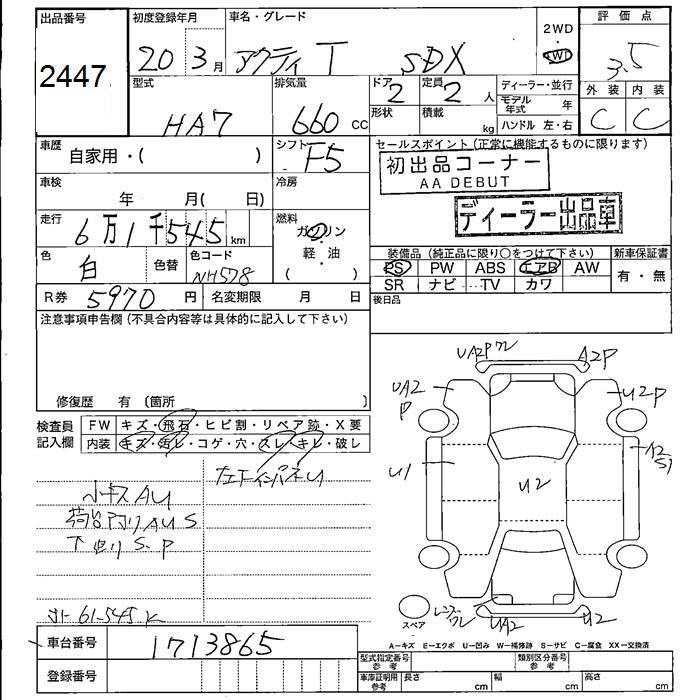 出品番号 初度登録年月 車名・グレード 2WD ・ 4WD 評価点
2447 20 3月 アクティ T SDX 3.5
型式 排気量 ドア 定員 ディーラー・並行 外装 内装
HA7 660 CC 2 2人 モデル年式 年 C C
形状 積載 kg ハンドル 左・右
車歴 自家用・( ) シフト F5 セールスポイント(正常に機能するものに限ります)
初出品コーナー
AA DEBUT
車検 年 月( 日) 冷房
ディーラー出品車
走行 6万1千545km 燃料 ガソリン
軽・油
( )
色 白 色替 色コード NH578 装備品(純正品に限り○をつけて下さい) 新車保証書
PS PW ABS エアB AW 有・無
SR ナビ TV カワ
R券 5970円 名変期限 月 日 後日品
注意事項申告欄(不具合内容等は具体的に記入して下さい)
修復歴 有 〔箇所 〕
検査員記入欄 FW キズ・飛石・ヒビ割・リペア跡・X要
内装 キズ・汚レ・コゲ・穴・スレ・キレ・破し
左下インパネU
小キスAU
荷台内リAUS
下廻りS.P
メーター 61545K
UA2Pワレ A2P
UA2
P
U2P
U1
A2
S1
U2
レンズワレ
UA2 U2
スペア
A－キズ E－エクボ U－凹み W－補修跡 S－サビ C－腐食 XX－交換済
車台番号 1713865
型式指定番号 参考 類別区分番号 参考
登録番号
車庫証明用 参考 長さ cm 幅 cm 高さ cm